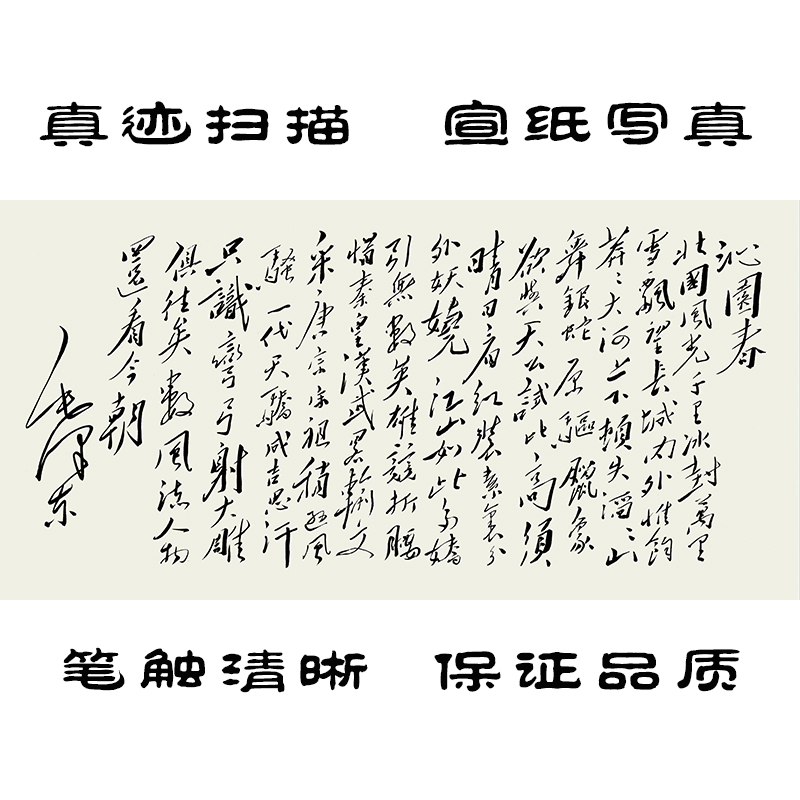 真迹扫描 宣纸写真
沁園春
北國風光千里冰封萬里
雪飄望長城内外惟餘
莽々大河上下頓失滔々山
舞銀蛇原驅臘象
欲與天公試比高須
晴日看紅裝素裹分
外妖嬈江山如此多嬌
引無數英雄競折腰
惜秦皇漢武略輸文
采唐宗宋祖稍遜風
騷一代天驕成吉思汗
只識彎弓射大雕
俱往矣數風流人物
還看今朝
毛澤東
笔触清晰 保证品质